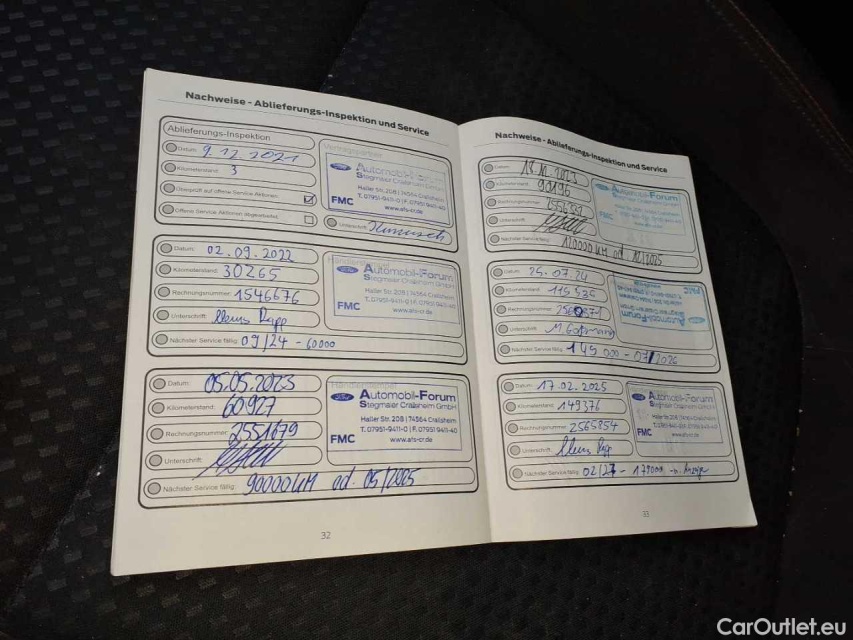 Nachweise - Ablieferungs-Inspektion und Service
Ablieferungs-Inspektion
Datum: 9.12.2021
Kilometerstand: 3
Überprüft auf offene Service Aktionen:
Offene Service Aktionen abgearbeitet:
Automobil-Forum
Stegmaier Crailsheim GmbH
Haller Str. 208 | 74564 Crailsheim
T. 07951-9411-0 | F. 07951-9411-40
www.afs-cr.de
FMC
Unterschrift:
Datum: 02.09.2022
Kilometerstand: 30265
Rechnungsnummer: 1546676
Unterschrift:
Nächster Service fällig: 09/24 - 60000
Händlerstempel
Automobil-Forum
Stegmaier Crailsheim GmbH
Haller Str. 208 | 74564 Crailsheim
T. 07951-9411-0 | F. 07951-9411-40
www.afs-cr.de
FMC
Datum: 05.05.2023
Kilometerstand: 60927
Rechnungsnummer: 2551679
Unterschrift:
Nächster Service fällig: 90000 KM od. 05/2025
Händlerstempel
Automobil-Forum
Stegmaier Crailsheim GmbH
Haller Str. 208 | 74564 Crailsheim
T. 07951-9411-0 | F. 07951-9411-40
www.afs-cr.de
FMC
32
Nachweise - Ablieferungs-Inspektion und Service
Datum:
Kilometerstand: 90196
Rechnungsnummer: 2556392
Unterschrift:
Nächster Service fällig:
Automobil-Forum
Stegmaier Crailsheim GmbH
FMC
Datum: 25.07.24
Kilometerstand: 115526
Rechnungsnummer:
Unterschrift:
Nächster Service fällig: 145 000 - 07/2026
Automobil-Forum
Stegmaier Crailsheim GmbH
FMC
Datum: 17.02.2025
Kilometerstand: 149376
Rechnungsnummer: 2565854
Unterschrift:
Nächster Service fällig: 02/27 - 179000
Automobil-Forum
Stegmaier Crailsheim GmbH
Haller Str. 208 | 74564 Crailsheim
www.afs-cr.de
FMC
33
CarOutlet.eu